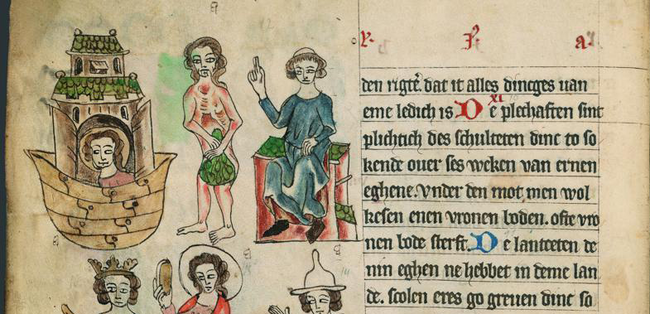 den rigte. dat it alles dincges uan
eme ledich is XI De plechaften sint
plichtich des schulteten dinc to so
kende ouer ses weken van ernen
eghene. Vnder den mot men wol
kesen enen vronen boden. ofte vro
nen bode sterft. De lantceten de
nin eghen ne hebbet in deme lan
de. scolen eres go greuen dinc so